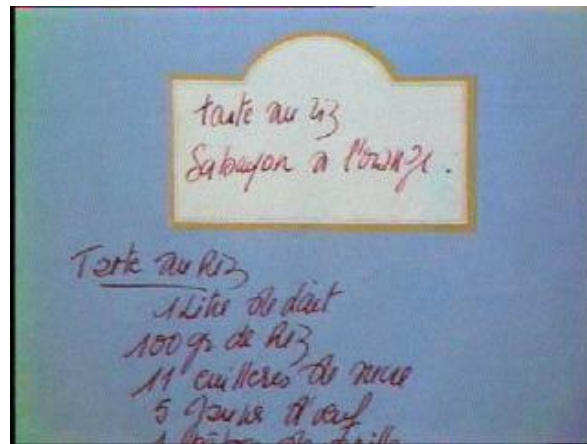 tarte au riz
Sabayon à l'orange.
Tarte au Riz
1 Litre de lait
100 gr de Riz
11 cuilleres de sucre
5 jaune d'oeuf
1